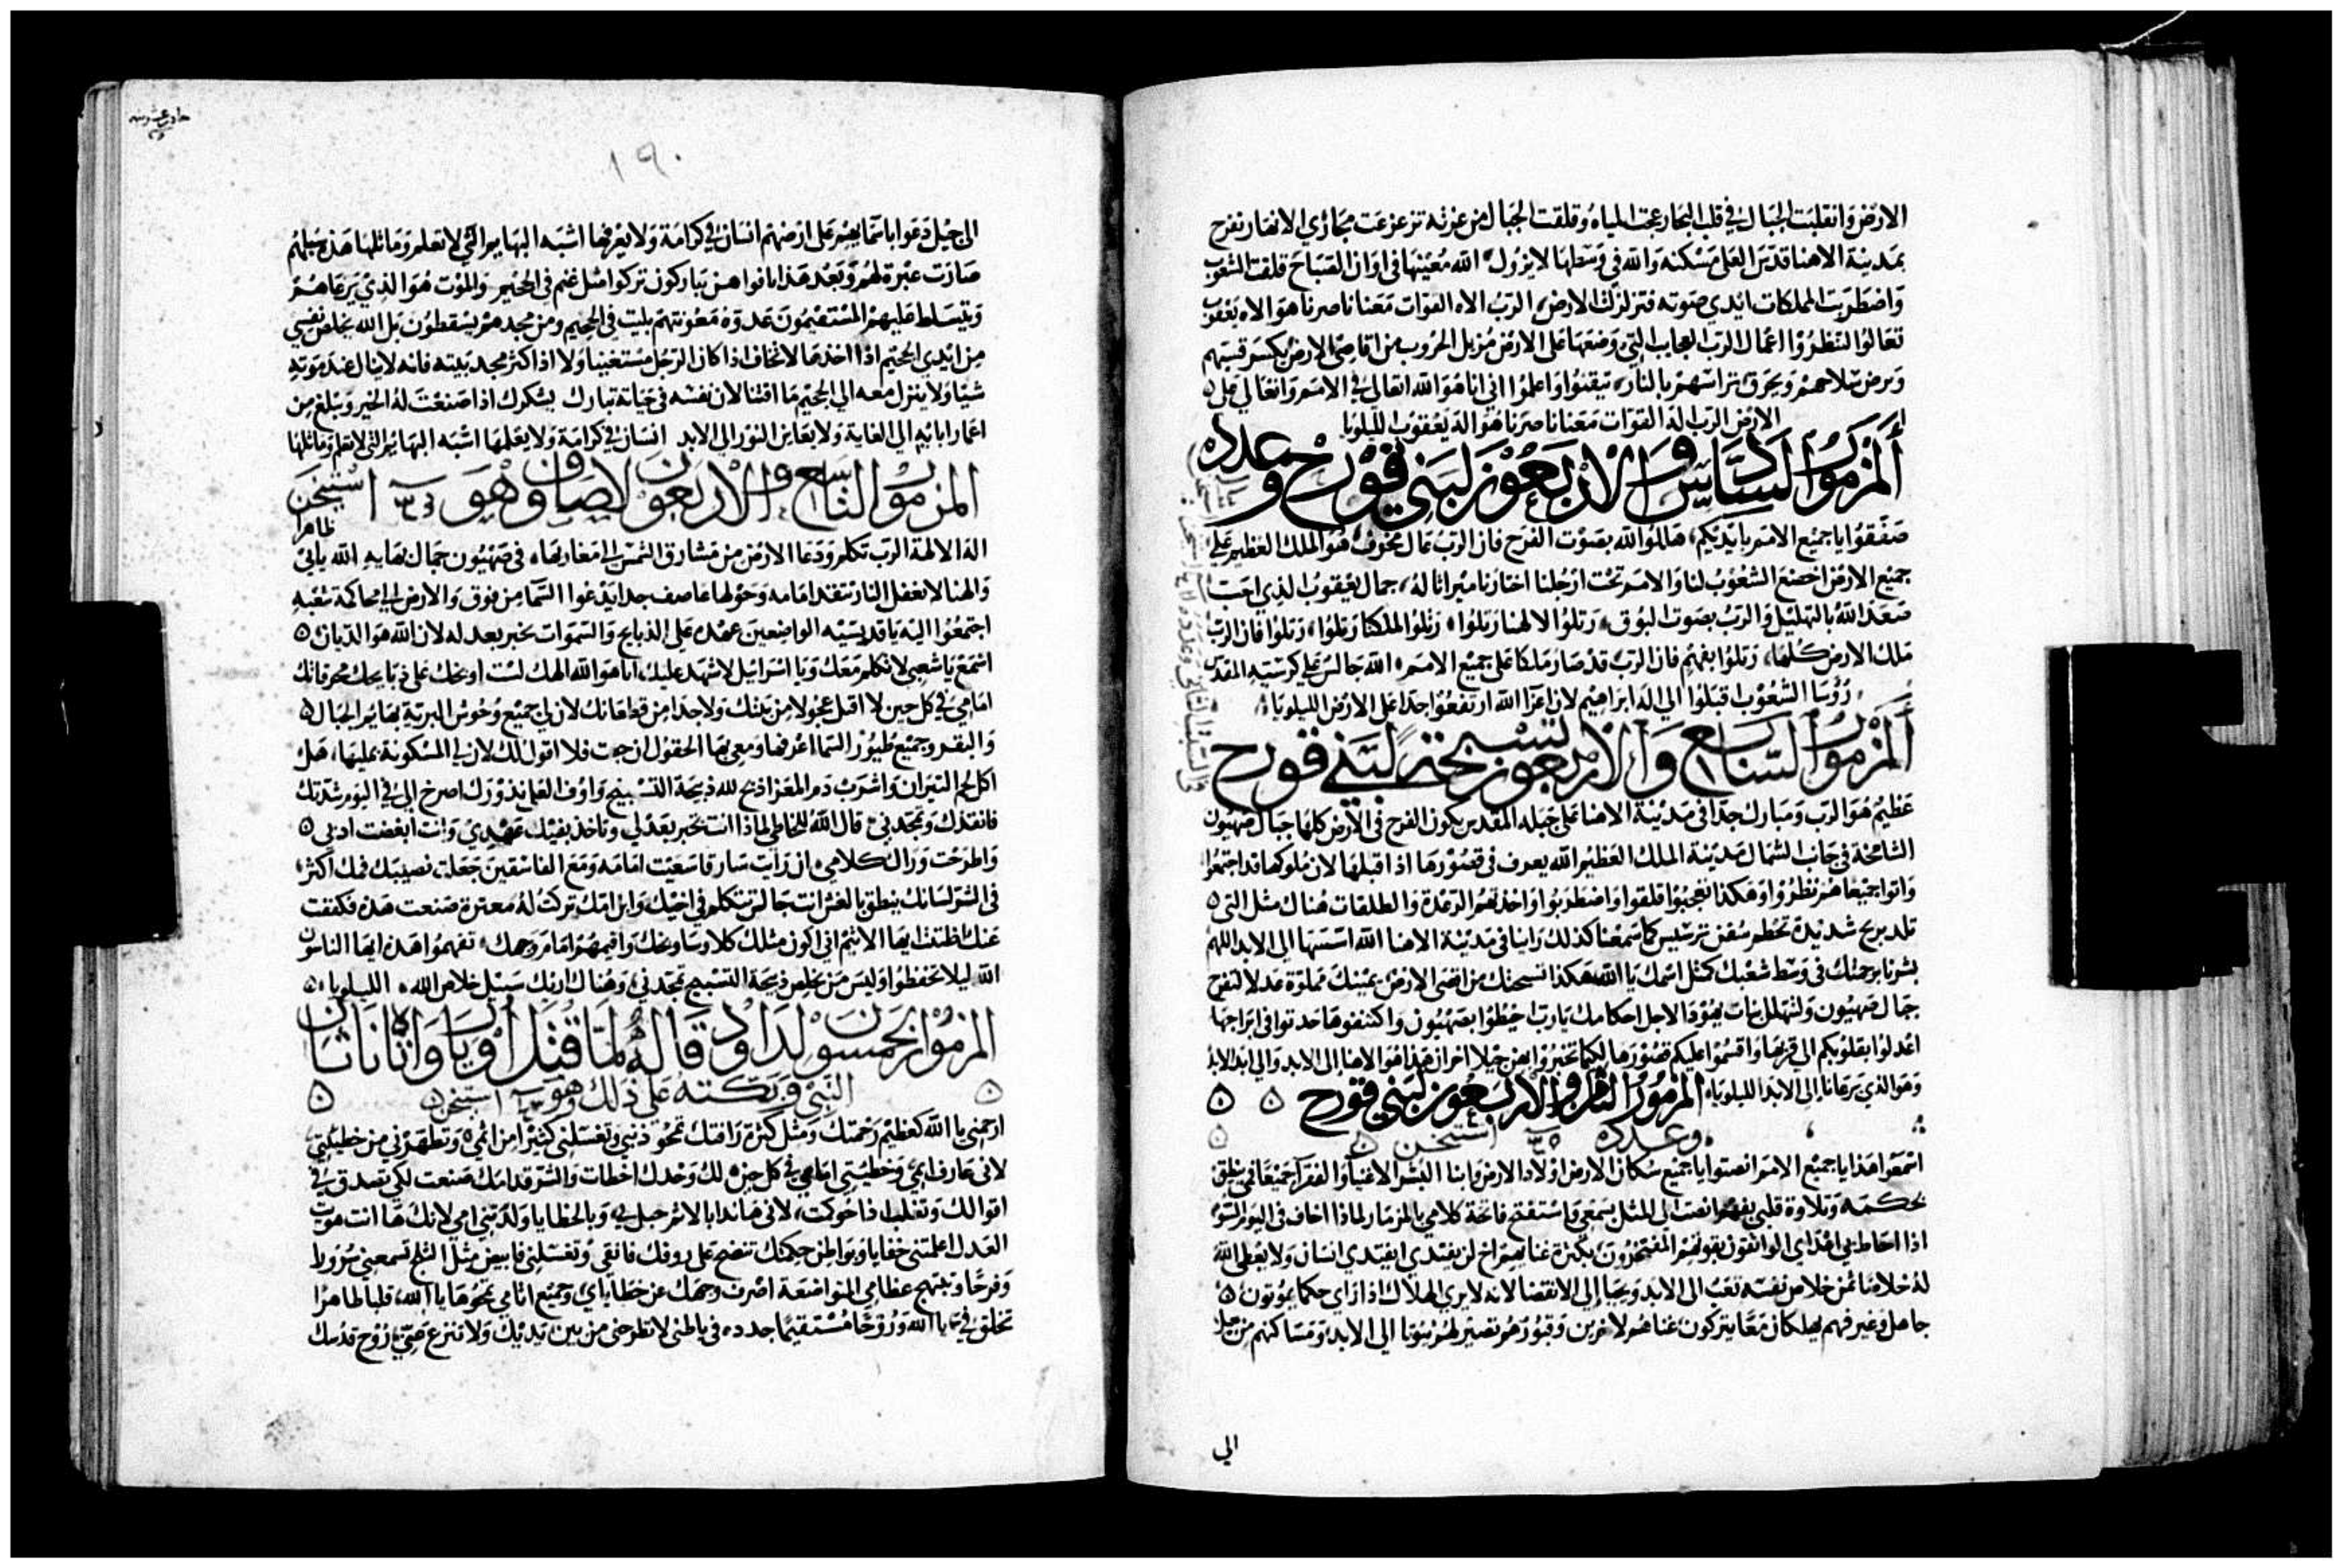 الارض وانقلبت الجبال في قلب البحار عجت المياه وقلقت الجبال من عزته تزعزعت مجاري الانهار تفرح
بمدينة الاهنا قدس العلي مسكنه والله في وسطها لا يزول الله معينها في اوان الصباح قلقت الشعوب
واضطربت المملكات ابدي صوته فتزلزلت الارض الرب الاه القوات معنا ناصرنا هو الاه يعقوب
تعالوا انظروا اعمال الرب العجايب التي وضعها على الارض مزيل الحروب من اقاصي الارض يكسر قسيهم
ويرض سلاحهم ويحرق تراسهم بالنار تيقنوا واعلموا اني انا هو الله اتعالى في الامم واتعالى على
الارض الرب اله القوات معنا ناصرنا هو اله يعقوب الليلويا
المزمور السادس والاربعون لبني قورح وعدده
صفقوا يا جميع الامم بايديكم هللوا لله بصوت الفرح فان الرب عال مخوف هو الملك العظيم على
جميع الارض اخضع الشعوب لنا والامم تحت ارجلنا اختارنا ميراثا له جمال يعقوب الذي احب
صعد الله بالتهليل والرب بصوت البوق رتلوا لالهنا رتلوا رتلوا لملكنا رتلوا رتلوا فان الرب
ملك الارض كلها رتلوا بفهم فان الرب قد صار ملكا على جميع الامم الله جالس على كرسيه المقدس
رؤسا الشعوب اقبلوا الى اله ابراهيم لان اعزا الله ارتفعوا جدا على الارض الليلويا
المزمور السابع والاربعون تسبحة لبني قورح
عظيم هو الرب ومبارك جدا في مدينة الاهنا على جبله المقدس يكون الفرح في الارض كلها جبال صهيون
الشامخة في جانب الشمال مدينة الملك العظيم الله يعرف في قصورها اذا اقبلها لان ملوكها قد اجتمعوا
واتوا جميعا هم نظروا وهكذا تعجبوا قلقوا واضطربوا واخذتهم الرعدة والطلقات هناك مثل التي
تلد بريح شديدة تحطم سفن ترسيس كما سمعنا كذلك راينا في مدينة الاهنا الله اسسها الى الابد اللهم
بشرنا برحمتك في وسط شعبك كمثل اسمك يا الله هكذا تسبحتك من اقصى الارض يمينك مملوة عدلا لتفرح
جبال صهيون ولتتهلل بنات يهوذا لاجل احكامك يارب احيطوا بصهيون واكتنفوها حدثوا في ابراجها
اعدلوا بقلوبكم الى قوتها واقسموا عليكم قصورها لكيما تخبروا بهن جيلا اخر ان هذا هو الاهنا الى الابد والى ابد الابد
وهو الذي يرعانا الى الابد الليلويا المزمور الثامن والاربعون لبني قورح
وعدده استيخن
اسمعوا هذا يا جميع الامم انصتوا يا جميع سكان الارض اولاد الارض وابنا البشر الاغنيا والفقرا جميعا فمي ينطق
بحكمة وتلاوة قلبي بفهم انصت الى المثل بسمعي واستفتح فاتحة كلامي بالمزمار لماذا اخاف في اليوم السو
اذا احاط بي اعداي الواثقون بقوتهم المفتخرون بكثرة غناهم اخ لن يفتدي ايفتدي انسان ولا يعطي الله
له خلاصا ثمن خلاص نفسه تعب الى الابد ويحيا الى الانقضا لانه لا يري الهلاك اذا راي حكما يموتون
جاهل وغير فهم يهلكان معا يتركون غناهم لاخرين وقبورهم تصير لهم بيوتا الى الابد ومساكنهم من جيل
الى
١٩٠
الى جيل دعوا باسمايهم على ارضهم انسان في كرامة ولا يعرفها اشبه البهايم التي لا تعلم وماثلها هذه سبلهم
صارت عثرة لهم وبعد هذا بافواههن يباركون تركوا مثل غنم في الجحيم والموت هو الذي يرعاهم
ويتسلط عليهم المستقيمون غدوة معونتهم بليت في الجحيم ومن مجدهم يسقطون بل الله يخلص نفسي
من ايدي الجحيم اذا اخذها لا تخاف اذا كان الرجل مستغنيا ولا اذا كثر مجد بيته فانه لا ينال عند موته
شيا ولا ينزل معه الى الجحيم ما اقتنا لان نفسه في حياته تبارك يشكرك اذا صنعت له الخير ويبلغ من
اعمار ابايه الى الغاية ولا يعاين النور الى الابد انسان في كرامة ولا يعلمها اشبه البهايم التي لا تعلم وماثلها
المزمور التاسع والاربعون لاصاف وهو استيخن
ظاهرا
اله الالهة الرب تكلم ودعا الارض من مشارق الشمس الى مغاربها في صهيون جمال بهايه الله ياتي
والهنا لا يغفل النار تتقد امامه وحولها عاصف جدا يدعوا السما من فوق والارض الى محاكمة شعبه
اجتمعوا اليه يا قديسيه الواضعين عهده على الذبايح والسموات تخبر بعدله لان الله هو الديان
اسمع يا شعبي لاتكلم معك ويا اسراييل لاشهد عليك انا هو الله الهك لست اوبخك على ذبايحك محرقاتك
امامي في كل حين لا اقبل عجولا من بيتك ولا جدا من قطعانك لان لي جميع وحوش البرية بهايم الجبال
والبقر وجميع طيور السما اعرفها ومعي بها الحقول ان جعت فلا اقول لك لان لي المسكونة بمليها هل
اكل لحم الثيران واشرب دم المعز اذبح لله ذبيحة التسبيح واوف العلي نذورك اصرخ الي في اليوم شدتك
فانقذك وتمجدني قال الله للخاطي لماذا انت تخبر بعدلي وتاخذ بفيك عهدي وانت ابغضت ادبي
واطرحت وراك كلامي ان رايت سارقا سعيت امامه ومع الفاسقين جعلت نصيبك فمك اكثر
في الشر لسانك ينطق بالغش انت جالس تتكلم في اخيك وابن امك تركت له معثرة صنعت هذه فكففت
عنك ظننت ايها الاثيم اني اكون مثلك كلا وساوبخك واقيمهم امام وجهك تفهموا هذه ايها الناسون
الله ليلا تخطفوا وليس من يخلص ذبيحة التسبيح تمجدني وهناك اريك سبيل خلاص الله الليلويا
المزمور الخمسون لداود قاله لما قتل اوريا واتاه ناثان
النبي وبكته على ذلك وهو استيخن
ارحمني يا الله كعظيم رحمتك ومثل كثرة رافتك تمحو ذنبي وتغسلني كثيرا من اثمي وتطهرني من خطيتي
لاني عارف اثمي وخطيتي امامي في كل حين لك وحدك اخطات والشر قدامك صنعت لكي تصدق في
اقوالك وتغلب اذا حوكمت لاني هاندا بالاثم حبل بي وبالخطايا ولدتني امي لانك ها انت هويت
العدل اعلمتني خفايا وبواطن حكمتك تنضح علي زوفك فانقى وتغسلني فابيض مثل الثلج تسمعني سرورا
وفرحا وتبتهج عظامي المتواضعة اصرف وجهك عن خطاياي وجميع اثامي تمحوها يا الله قلبا طاهرا
تخلق في يا الله وروحا مستقيما جدده في باطني لا تطرحني من بين يديك ولا تنزع مني روح قدسك